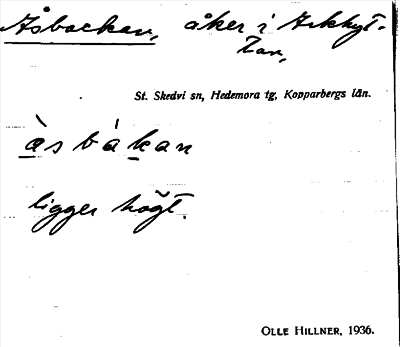 Åsbackan, åker i Arkhyt-
tan,
St. Skedvi sn, Hedemora tg, Kopparbergs län.
àsbákan
ligger högt.
OLLE HILLNER, 1936.